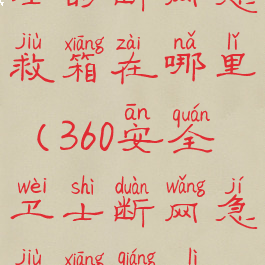 jiù xiāng zài nǎ lǐ
救箱在哪里
ān quán
(360安全
wèi shì duàn wǎng jí
卫士断网急
jiù xiāng qiáng lì